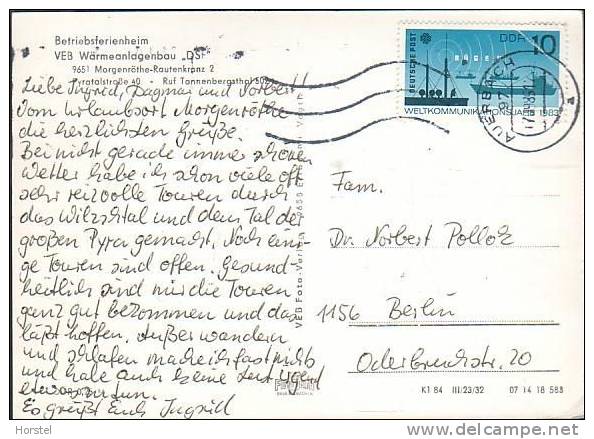 Betriebsferienheim
VEB Wärmeanlagenbau „DSF"
9651 Morgenröthe-Rautenkranz 2
Pyratalstraße 40 · Ruf Tannenbergsthal
Liebe Ingrid, Dagmar und Norbert
Vom Urlaubsort Morgenröthe
die herzlichsten Grüße.
Bei nicht gerade immer schönen
Wetter habe ich schon viele oft
sehr reizvolle Touren durch
das Wilzschtal und dem Tal der
großen Pyra gemacht. Noch eini-
ge Touren sind offen. Gesund-
heitlich sind mir die Touren
ganz gut bekommen und das
läßt hoffen. Außer wandern
und schlafen mache ich fast nichts
und habe auch keine Lust irgend
etwas zu tun.
Es grüßt Euch Ingrid
VEB Foto-Verlag
DEUTSCHE POST
DDR 10
RÜGEN
WELTKOMMUNIKATIONSJAHR 1983
AUERBACH
Fam.
Dr. Norbert Pollok
1156 Berlin
Oderbruchstr. 20
K1 84 III/23/32 07 14 18 588
Horstel
delcampe.net